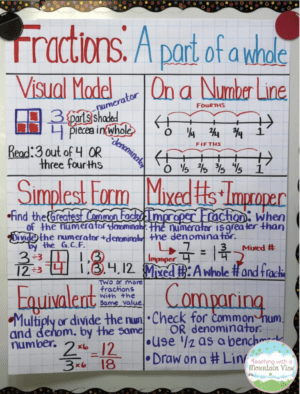 Fractions: A part of a whole
Visual Model
3 parts shaded
4 pieces in whole
numerator
denominator
Read: 3 out of 4 OR
three fourths
On a Number Line
FOURTHS
0 1/4 2/4 3/4 1
FIFTHS
0 1/5 2/5 3/5 4/5 1
Simplest Form
•Find the Greatest Common Factor
of the numerator + denominator
•Divide the numerator + denominator
by the G.C.F.
3 ÷3 1 1, 3
12 ÷3 4 1, 3, 4, 12
Mixed #s + Improper
Improper Fraction: When
the numerator is greater than
the denominator.
Improper 4 = 1 Mixed #
Mixed #: A whole # and fracti
Equivalent
Two or more
fractions
with the
same value.
•Multiply or divide the num.
and denom. by the same
number.
2 x6 = 12
3 x6 18
Comparing
•Check for common num.
OR denominator.
•Use 1/2 as a benchm
•Draw on a # Lin
Teaching with a
Mountain View